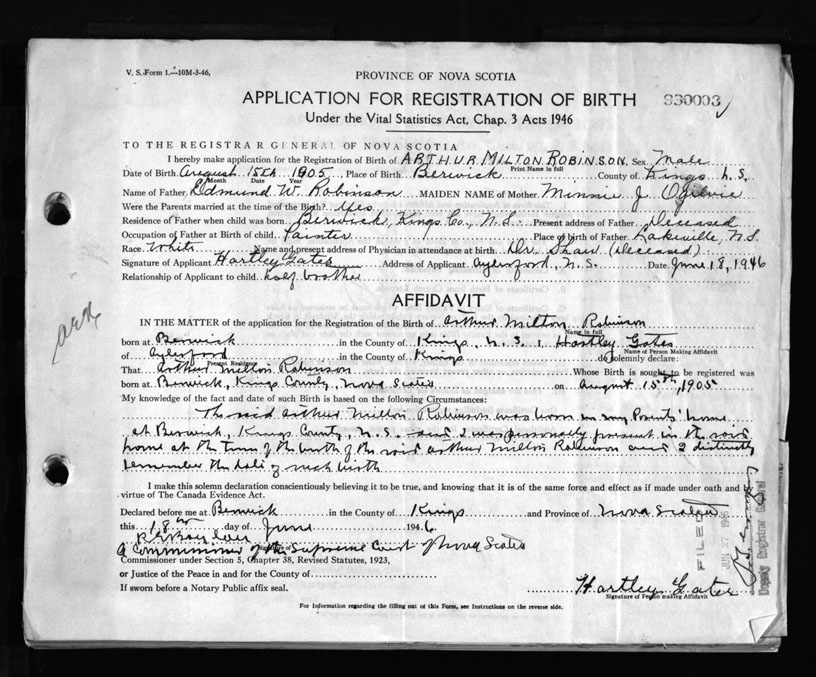 V. S. Form 1.—10M-3-46.
PROVINCE OF NOVA SCOTIA
APPLICATION FOR REGISTRATION OF BIRTH 930003
Under the Vital Statistics Act, Chap. 3 Acts 1946
TO THE REGISTRAR GENERAL OF NOVA SCOTIA
I hereby make application for the Registration of Birth of ARTHUR MILTON ROBINSON, Sex Male
Print Name in full
Date of Birth August 15th 1905 Place of Birth Berwick County of Kings N.S.
Month Date Year
Name of Father Edmund W. Robinson MAIDEN NAME of Mother Minnie J Ogilvie
Were the Parents married at the time of the Birth? Yes
Residence of Father when child was born Berwick, Kings Co., N.S. Present address of Father Deceased
Occupation of Father at Birth of child Painter Place of birth of Father Lakeville, N.S.
Race White Name and present address of Physician in attendance at birth Dr. Shaw (deceased)
Signature of Applicant Hartley Gates Address of Applicant Aylesford, N.S. Date June 18, 1946
Relationship of Applicant to child half brother
AFFIDAVIT
IN THE MATTER of the application for the Registration of the Birth of Arthur Milton Robinson
Name in full
born at Berwick in the County of Kings N.S. I Hartley Gates
Name of Person Making Affidavit
of Aylesford in the County of Kings do solemnly declare:
Present Residence
That Arthur Milton Robinson Whose Birth is sought to be registered was
born at Berwick, Kings County, Nova Scotia on August 15th, 1905
My knowledge of the fact and date of such Birth is based on the following Circumstances:
The said Arthur Milton Robinson was born in my Parents' home
at Berwick, Kings County, N.S. and I was personally present in the said
home at the time of the birth of the said Arthur Milton Robinson and I distinctly
remember the date of such birth
I make this solemn declaration conscientiously believing it to be true, and knowing that it is of the same force and effect as if made under oath and by
virtue of The Canada Evidence Act.
Declared before me at Berwick in the County of Kings and Province of Nova Scotia
this 18th day of June 1946
A Commissioner of the Supreme Court of Nova Scotia
Commissioner under Section 5, Chapter 38, Revised Statutes, 1923,
or Justice of the Peace in and for the County of
If sworn before a Notary Public affix seal.
Hartley Gates
Signature of Person making Affidavit
For Information regarding the filling out of this Form, see Instructions on the reverse side.
FILED
JUN 27 1946
Deputy Registrar General